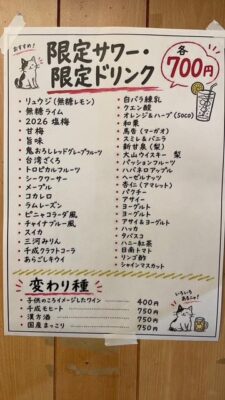 おすすめ!
限定サワー・
限定ドリンク
各
700円
・リュウジ(無糖レモン)
・無糖ライム
・2026 塩梅
・甘梅
・旨味
・鬼おろしレッドグレープフルーツ
・台湾ざくろ
・トロピカルフルーツ
・シークワーサー
・メープル
・コカレロ
・ラムレーズン
・ピニャコラーダ風
・チャイナブルー風
・スイカ
・三河みりん
・千成クラフトコーラ
・あらごしキウイ
・白バラ練乳
・クエン酸
・オレンジ&ハーブ(SOCO)
・和栗
・馬告(マーガオ)
・スミレ&バニラ
・新甘泉(梨)
・大山ウイスキー 梨
・パッションフルーツ
・ハバネロアップル
・ヘーゼルナッツ
・杏仁(アマレット)
・パクチー
・アサイー
・ヨーグルト
・ヨーグルト
・アサイ&ヨーグルト
・ハッカ
・タバスコ
・ハニー紅茶
・日南トマト
・リンゴ酢
・シャインマスカット
変わり種
・子供のころイメージしたワイン 400円
・千成モヒート 750円
・漢方酒 750円
・国産まっこり 750円
いろいろ
あるニャ!